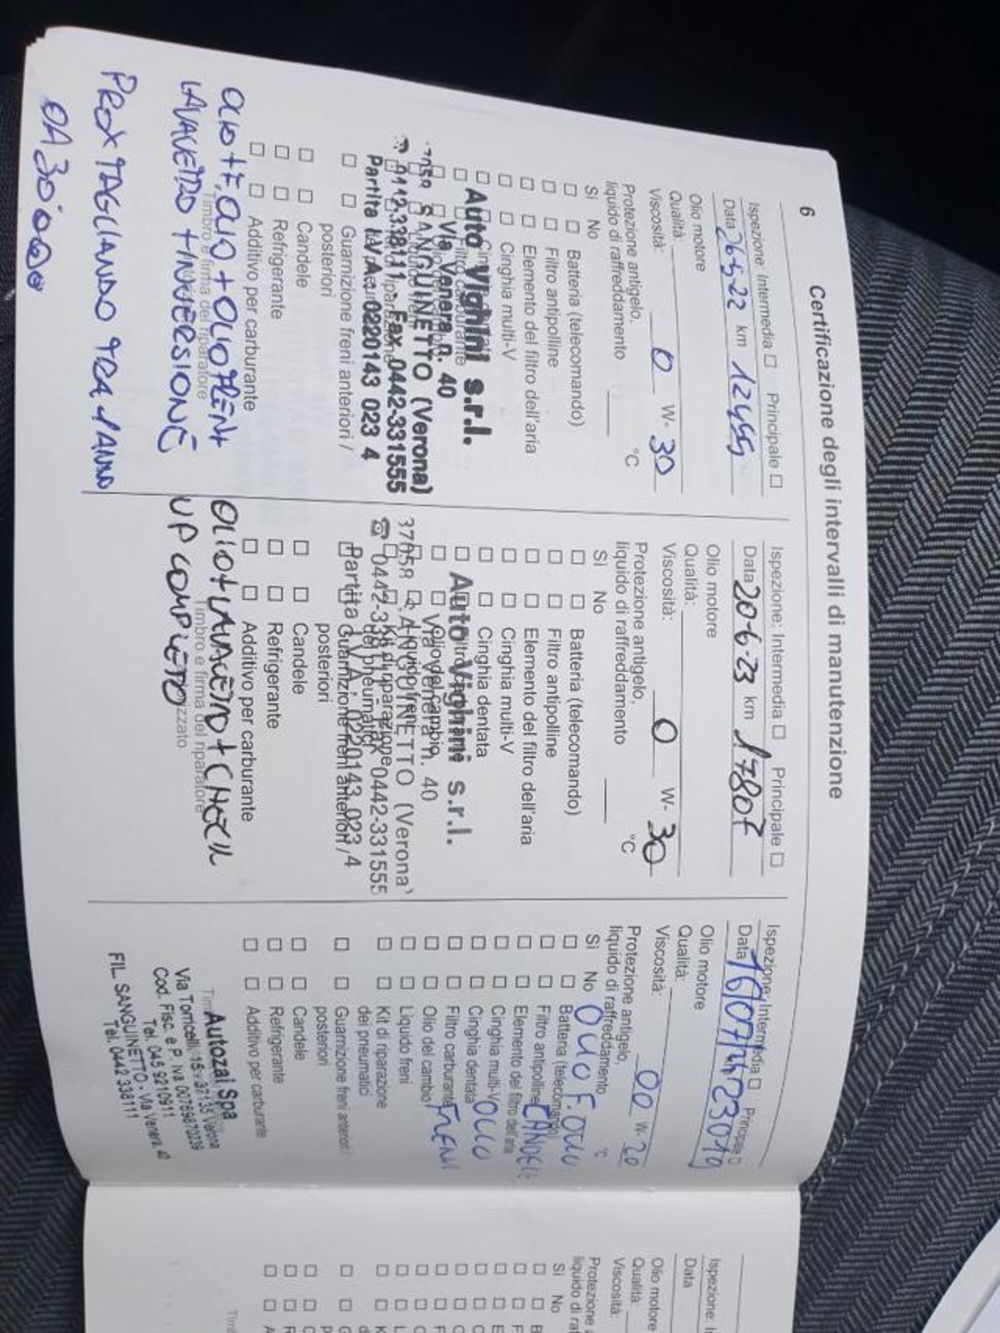 6
Certificazione degli intervalli di manutenzione
Ispezione: Intermedia □ Principale □
Data 26-5-22 km 12455
Olio motore
Qualità:
Viscosità: 0 W- 30
Protezione antigelo,
liquido di raffreddamento °C
Si No
□ □ Batteria (telecomando)
□ □ Filtro antipolline
□ □ Elemento del filtro dell'aria
□ □ Cinghia multi-V
Auto Vighini s.r.l.
Via Venera n. 40
SANGUINETTO (Verona)
☎ 0442-338111 - Fax 0442-331555
Partita I.V.A. 0220143 023 4
□ □ Guarnizione freni anteriori /
posteriori
□ □ Candele
□ □ Refrigerante
□ □ Additivo per carburante
Timbro e firma del riparatore
OLIO + F. OLIO + OLIO FRENI +
LAVAVETRO + INVERSIONE
PROX TAGLIANDO TRA 1 ANNO
OA 30.000
Ispezione: Intermedia □ Principale □
Data 20-6-23 km 17807
Olio motore
Qualità:
Viscosità: 0 W- 30
Protezione antigelo,
liquido di raffreddamento °C
Si No
□ □ Batteria (telecomando)
□ □ Filtro antipolline
□ □ Elemento del filtro dell'aria
□ □ Cinghia multi-V
□ □ Cinghia dentata
Auto Vighini s.r.l.
Via Venera n. 40
37058 SANGUINETTO (Verona)
☎ 0442-338111 Fax 0442-331555
Partita I.V.A. 0220143 023 4
□ □ Guarnizione freni anteriori /
posteriori
□ □ Candele
□ □ Refrigerante
□ □ Additivo per carburante
Timbro e firma del riparatore
OLIO + LAVAVETRO + CHECK
UP COMPLETO
Ispezione: Intermedia □ Principale □
Data 16/07/24 23010
Olio motore
Qualità:
Viscosità: 00 W- 20
Protezione antigelo,
liquido di raffreddamento °C
Si No OLIO F. OLIO
□ □ Batteria (telecomando)
□ □ Filtro antipolline CANDELE
□ □ Elemento del filtro dell'aria
□ □ Cinghia multi-V OLIO
□ □ Cinghia dentata
□ □ Filtro carburante FRENI
□ □ Olio del cambio
□ □ Liquido freni
□ □ Kit di riparazione
dei pneumatici
□ □ Guarnizione freni anteriori /
posteriori
□ □ Candele
□ □ Refrigerante
□ □ Additivo per carburante
Autozai Spa
Via Torricelli 15 - 37135 Verona
Cod. Fisc. e P. Iva 00769670239
Tel. 045 9210911
FIL. SANGUINETTO - Via Venera, 40
Tel. 0442 338111
Ispezione: I
Data
Olio motore
Qualità:
Viscosità:
Protezione a
liquido di raf
Si No